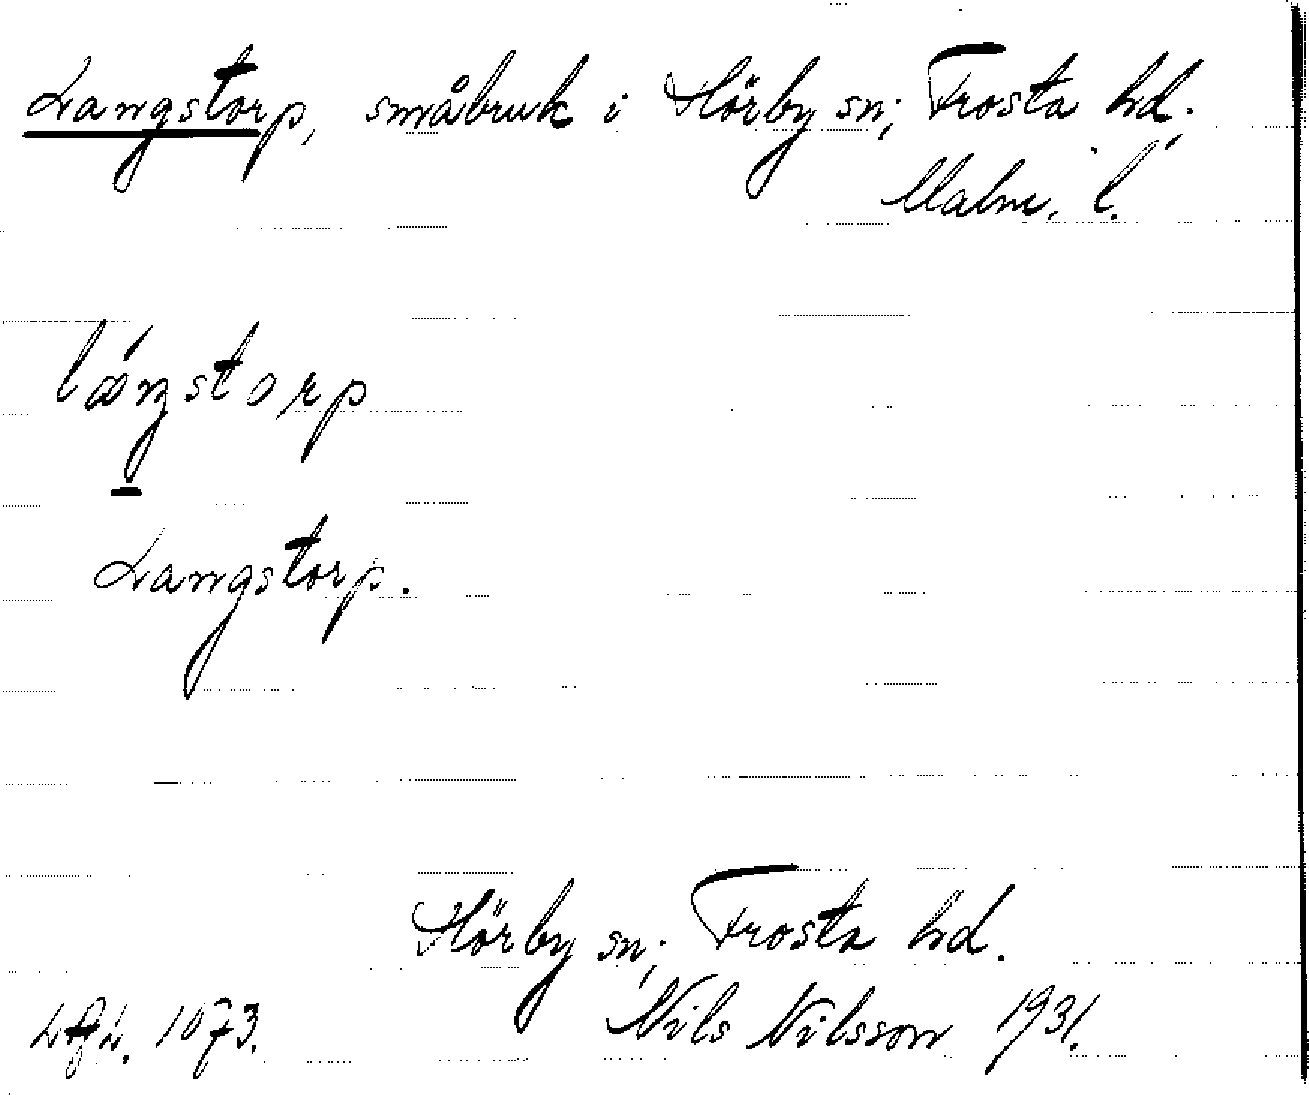 Langstorp, småbruk i Hörby sn; Frosta hd.
Malm. l.
Langstorp.
Hörby sn; Frosta hd.
1073. Nils Nilsson 1931.